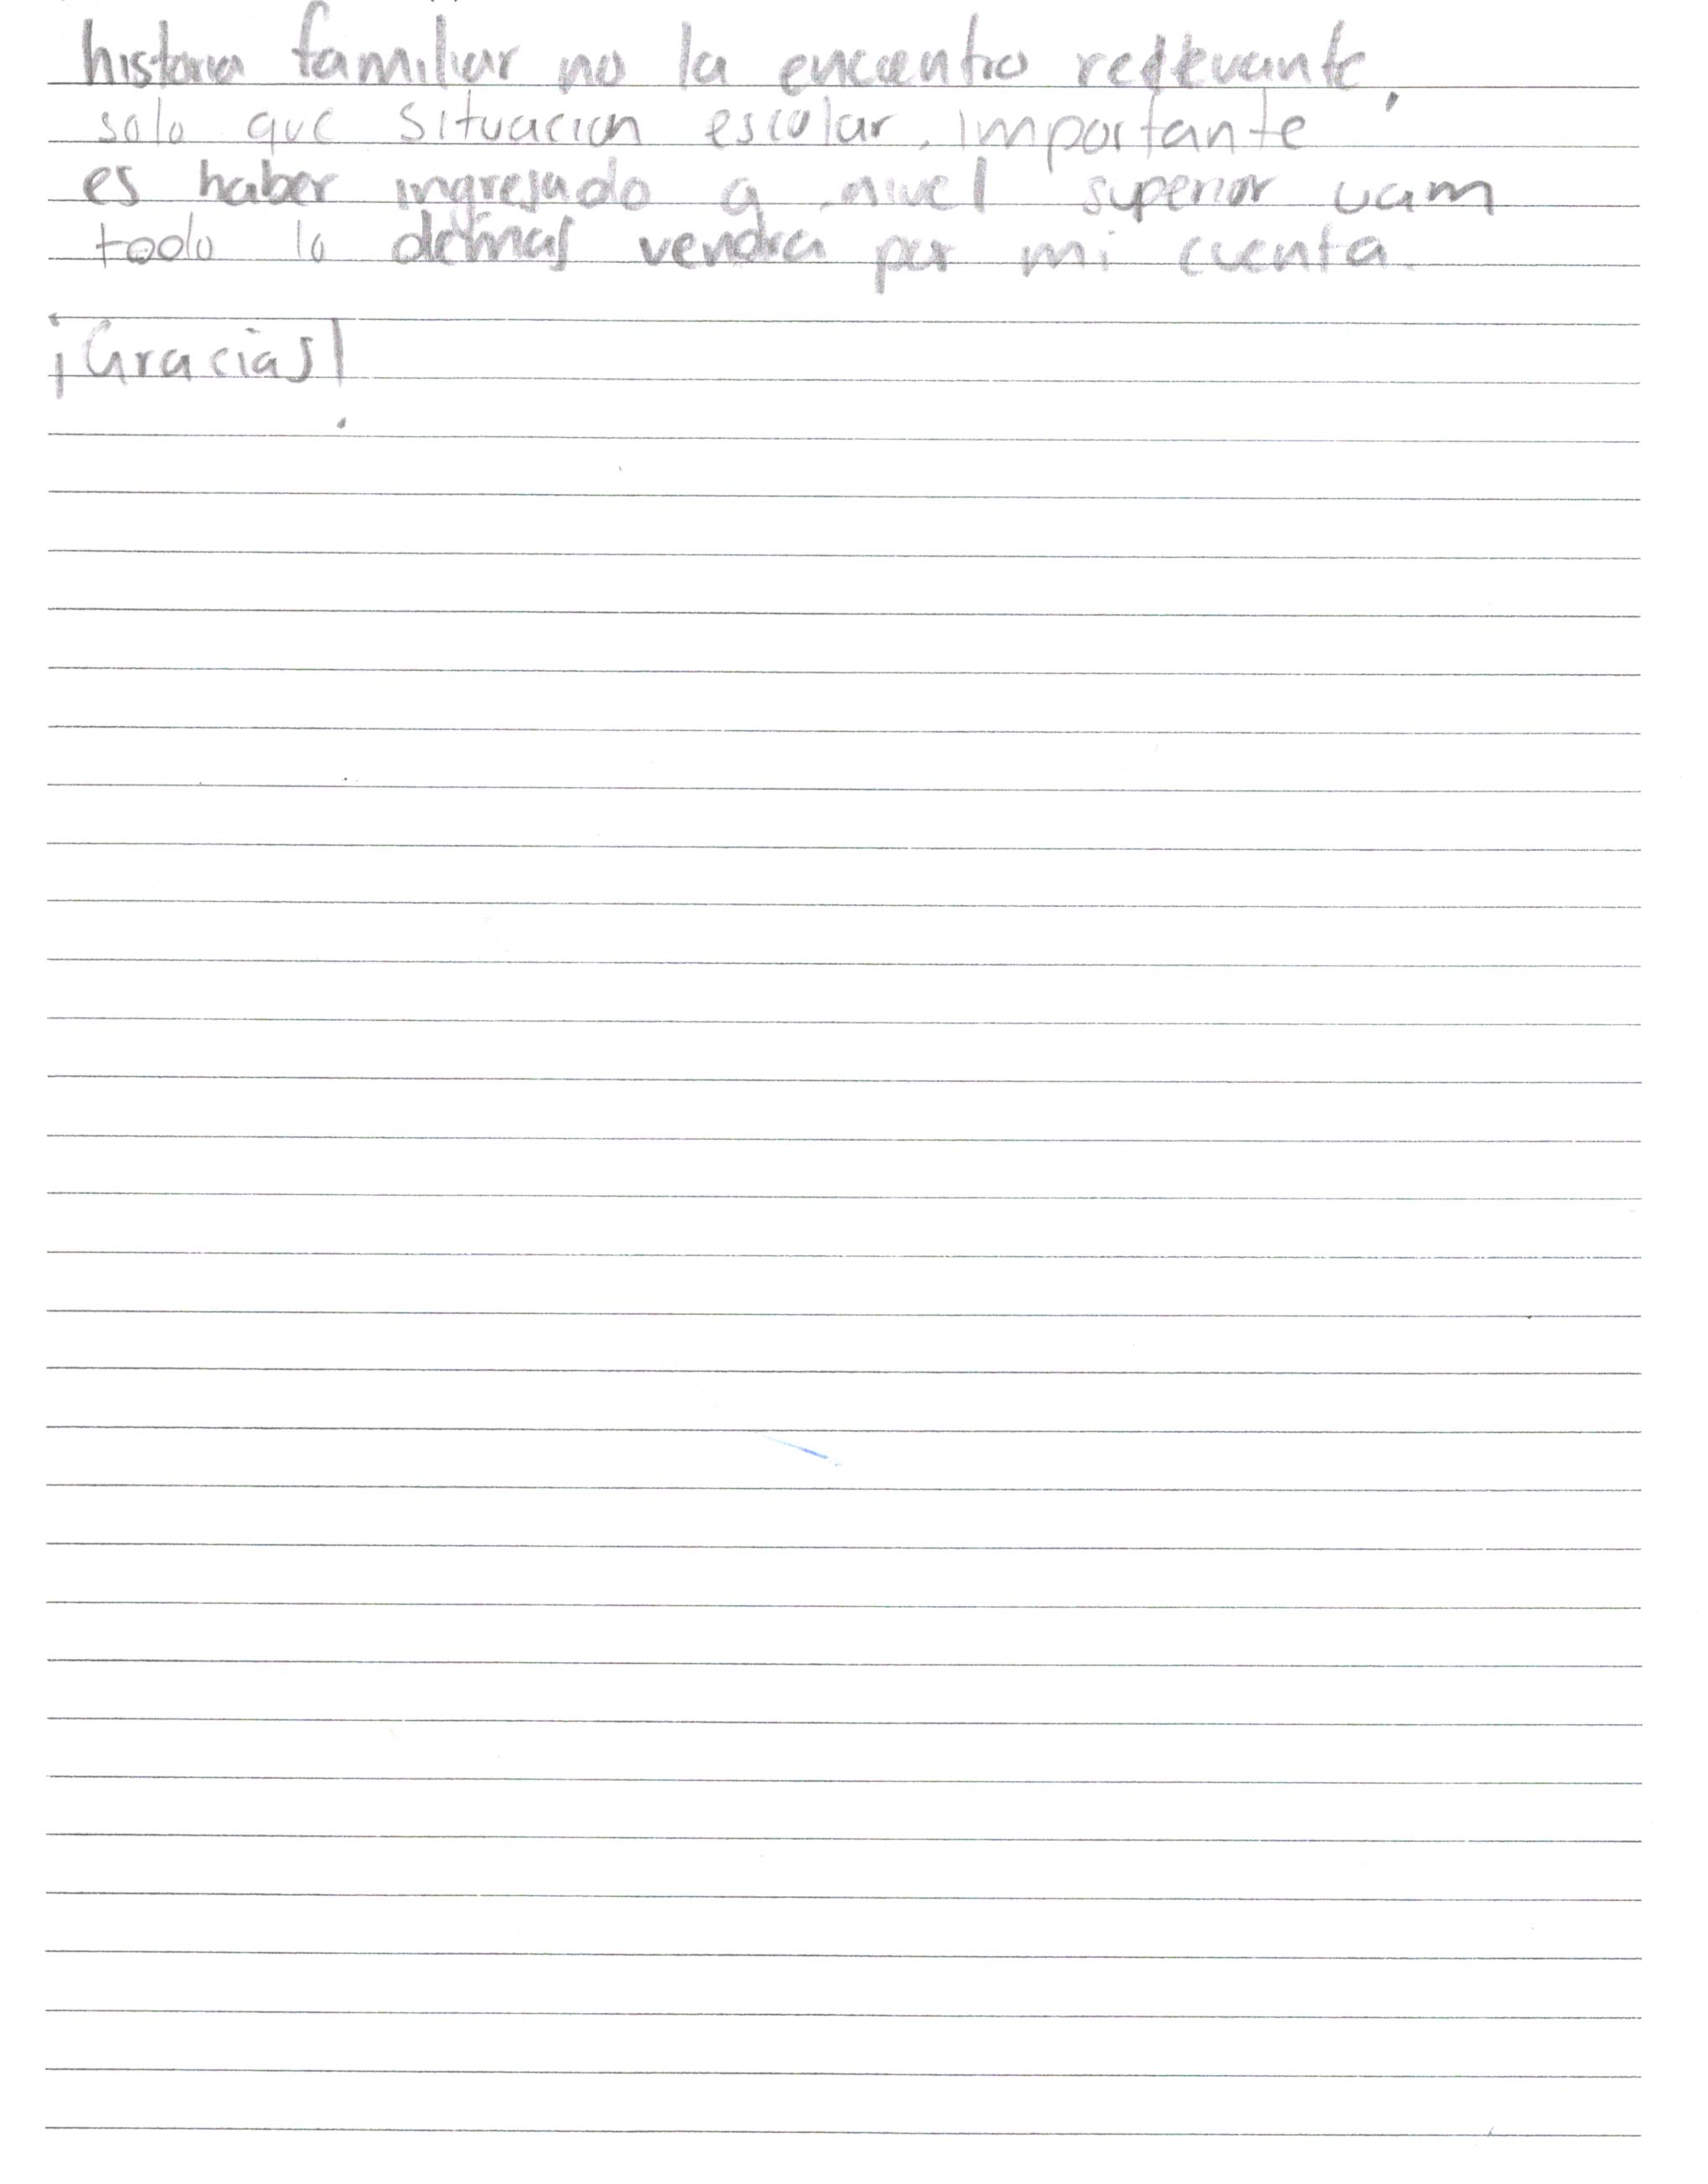 historia familiar no la encuentro relevante,
solo que situacion escolar, importante
es haber ingresado a nivel superior uam
todo lo demas vendra por mi cuenta.
¡Gracias!